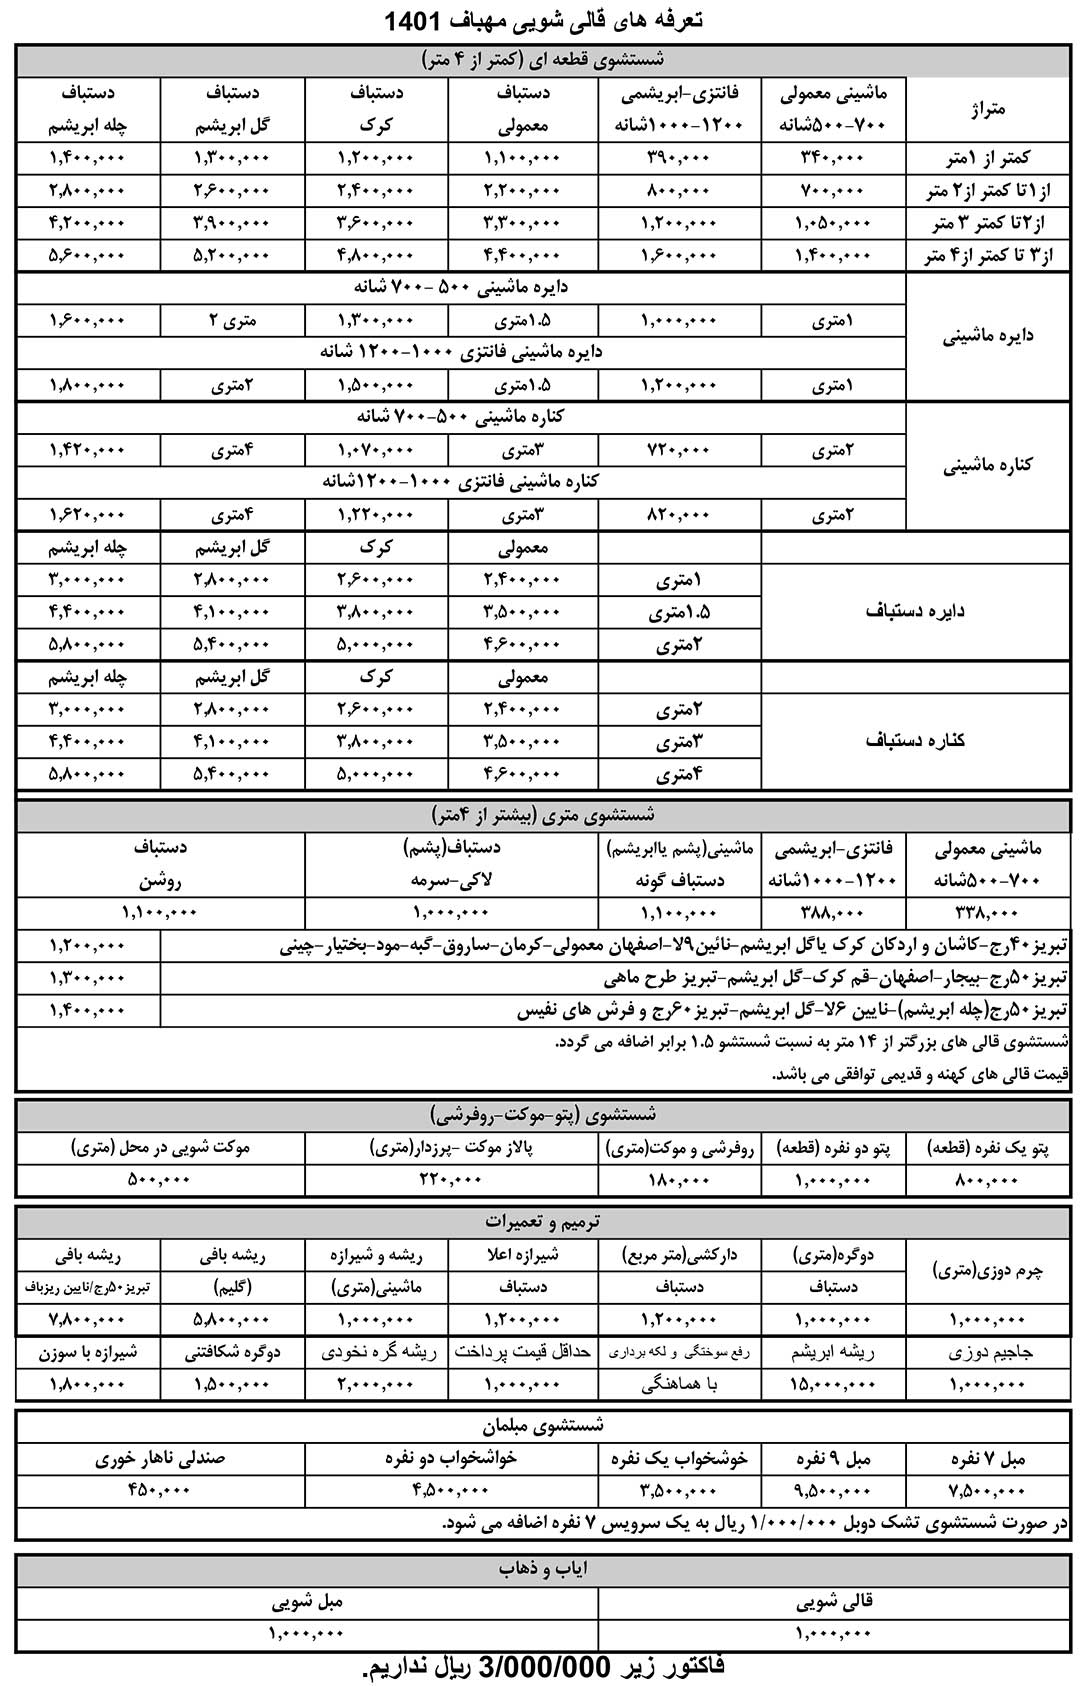 تعرفه های قالی شویی مهباف 1401
شستشوی قطعه ای (کمتر از ۴ متر)
متراژ ماشینی معمولی ۷۰۰-۵۰۰شانه فانتزی-ابریشمی ۱۲۰۰-۱۰۰۰شانه دستباف معمولی دستباف کرک دستباف گل ابریشم دستباف چله ابریشم
کمتر از ۱متر ۳۴۰,۰۰۰ ۳۹۰,۰۰۰ ۱,۱۰۰,۰۰۰ ۱,۲۰۰,۰۰۰ ۱,۳۰۰,۰۰۰ ۱,۴۰۰,۰۰۰
از۱تا کمتر از۲ متر ۷۰۰,۰۰۰ ۸۰۰,۰۰۰ ۲,۲۰۰,۰۰۰ ۲,۴۰۰,۰۰۰ ۲,۶۰۰,۰۰۰ ۲,۸۰۰,۰۰۰
از۲تا کمتر ۳ متر ۱,۰۵۰,۰۰۰ ۱,۲۰۰,۰۰۰ ۳,۳۰۰,۰۰۰ ۳,۶۰۰,۰۰۰ ۳,۹۰۰,۰۰۰ ۴,۲۰۰,۰۰۰
از۳ تا کمتر از۴ متر ۱,۴۰۰,۰۰۰ ۱,۶۰۰,۰۰۰ ۴,۴۰۰,۰۰۰ ۴,۸۰۰,۰۰۰ ۵,۲۰۰,۰۰۰ ۵,۶۰۰,۰۰۰
دایره ماشینی
دایره ماشینی ۵۰۰ -۷۰۰ شانه
۱متری ۱,۰۰۰,۰۰۰ ۱.۵متری ۱,۳۰۰,۰۰۰ متری ۲ ۱,۶۰۰,۰۰۰
دایره ماشینی فانتزی ۱۰۰۰-۱۲۰۰ شانه
۱متری ۱,۲۰۰,۰۰۰ ۱.۵متری ۱,۵۰۰,۰۰۰ ۲متری ۱,۸۰۰,۰۰۰
کناره ماشینی
کناره ماشینی ۵۰۰-۷۰۰ شانه
۲متری ۷۲۰,۰۰۰ ۳متری ۱,۰۷۰,۰۰۰ ۴متری ۱,۴۲۰,۰۰۰
کناره ماشینی فانتزی ۱۰۰۰-۱۲۰۰شانه
۲متری ۸۲۰,۰۰۰ ۳متری ۱,۲۲۰,۰۰۰ ۴متری ۱,۶۲۰,۰۰۰
معمولی کرک گل ابریشم چله ابریشم
دایره دستباف
۱متری ۲,۴۰۰,۰۰۰ ۲,۶۰۰,۰۰۰ ۲,۸۰۰,۰۰۰ ۳,۰۰۰,۰۰۰
۱.۵متری ۳,۵۰۰,۰۰۰ ۳,۸۰۰,۰۰۰ ۴,۱۰۰,۰۰۰ ۴,۴۰۰,۰۰۰
۲متری ۴,۶۰۰,۰۰۰ ۵,۰۰۰,۰۰۰ ۵,۴۰۰,۰۰۰ ۵,۸۰۰,۰۰۰
معمولی کرک گل ابریشم چله ابریشم
کناره دستباف
۲متری ۲,۴۰۰,۰۰۰ ۲,۶۰۰,۰۰۰ ۲,۸۰۰,۰۰۰ ۳,۰۰۰,۰۰۰
۳متری ۳,۵۰۰,۰۰۰ ۳,۸۰۰,۰۰۰ ۴,۱۰۰,۰۰۰ ۴,۴۰۰,۰۰۰
۴متری ۴,۶۰۰,۰۰۰ ۵,۰۰۰,۰۰۰ ۵,۴۰۰,۰۰۰ ۵,۸۰۰,۰۰۰
شستشوی متری (بیشتر از ۴متر)
ماشینی معمولی ۷۰۰-۵۰۰شانه فانتزی-ابریشمی ۱۲۰۰-۱۰۰۰شانه ماشینی(پشم یاابریشم) دستباف گونه دستباف(پشم) لاکی-سرمه دستباف روشن
۳۳۸,۰۰۰ ۳۸۸,۰۰۰ ۱,۱۰۰,۰۰۰ ۱,۰۰۰,۰۰۰ ۱,۱۰۰,۰۰۰
تبریز۴۰رج-کاشان و اردکان کرک یاگل ابریشم-نائین۹لا-اصفهان معمولی-کرمان-ساروق-گبه-مود-بختیار-چینی ۱,۲۰۰,۰۰۰
تبریز۵۰رج-بیجار-اصفهان-قم کرک-گل ابریشم-تبریز طرح ماهی ۱,۳۰۰,۰۰۰
تبریز۵۰رج(چله ابریشم)-نایین ۶لا-گل ابریشم-تبریز۶۰رج و فرش های نفیس ۱,۴۰۰,۰۰۰
شستشوی قالی های بزرگتر از ۱۴ متر به نسبت شستشو ۱.۵ برابر اضافه می گردد.
قیمت قالی های کهنه و قدیمی توافقی می باشد.
شستشوی (پتو-موکت-روفرشی)
پتو یک نفره (قطعه) پتو دو نفره (قطعه) روفرشی و موکت(متری) پالاز موکت -پرزدار(متری) موکت شویی در محل (متری)
۸۰۰,۰۰۰ ۱,۰۰۰,۰۰۰ ۱۸۰,۰۰۰ ۲۲۰,۰۰۰ ۵۰۰,۰۰۰
ترمیم و تعمیرات
چرم دوزی(متری) دوگره(متری) دستباف دارکشی(متر مربع) دستباف شیرازه اعلا دستباف ریشه و شیرازه ماشینی(متری) ریشه بافی (گلیم) ریشه بافی تبریز۵۰رج/نایین ریزباف
۱,۰۰۰,۰۰۰ ۱,۰۰۰,۰۰۰ ۱,۲۰۰,۰۰۰ ۱,۲۰۰,۰۰۰ ۱,۰۰۰,۰۰۰ ۵,۸۰۰,۰۰۰ ۷,۸۰۰,۰۰۰
جاجیم دوزی ریشه ابریشم رفع سوختگی و لکه برداری حداقل قیمت پرداخت ریشه گره نخودی دوگره شکافتنی شیرازه با سوزن
۱,۰۰۰,۰۰۰ ۱۵,۰۰۰,۰۰۰ با هماهنگی ۱,۰۰۰,۰۰۰ ۲,۰۰۰,۰۰۰ ۱,۵۰۰,۰۰۰ ۱,۸۰۰,۰۰۰
شستشوی مبلمان
مبل ۷ نفره مبل ۹ نفره خوشخواب یک نفره خواشخواب دو نفره صندلی ناهار خوری
۷,۵۰۰,۰۰۰ ۹,۵۰۰,۰۰۰ ۳,۵۰۰,۰۰۰ ۴,۵۰۰,۰۰۰ ۴۵۰,۰۰۰
در صورت شستشوی تشک دوبل ۱/۰۰۰/۰۰۰ ریال به یک سرویس ۷ نفره اضافه می شود.
ایاب و ذهاب
قالی شویی مبل شویی
۱,۰۰۰,۰۰۰ ۱,۰۰۰,۰۰۰
فاکتور زیر 3/000/000 ریال نداریم.